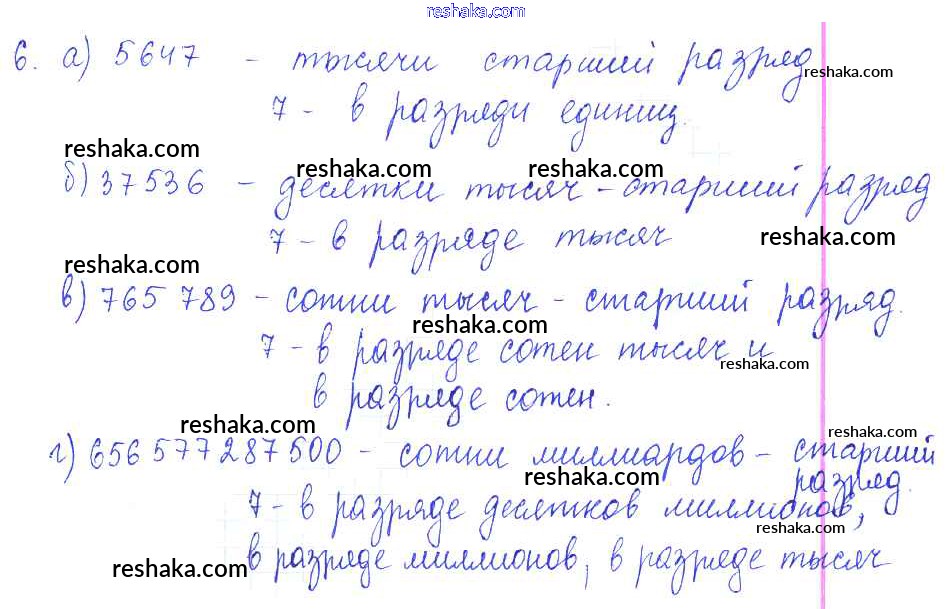 reshaka.com
6. а) 5647 - тысячи старший разряд
reshaka.com
7 - в разряди единиц.
reshaka.com
reshaka.com
reshaka.com
б) 37536 - десятки тысяч - старший разряд
7 - в разряде тысяч
reshaka.com
reshaka.com
в) 765 789 - сотни тысяч - старший разряд.
reshaka.com
7 - в разряде сотен тысяч и
reshaka.com
в разряде сотен.
reshaka.com
reshaka.com
г) 656 577 287 500 - сотни миллиардов - старший
разряд.
reshaka.com
7 - в разряде десятков миллионов,
reshaka.com
в разряде миллионов, в разряде тысяч
reshaka.com